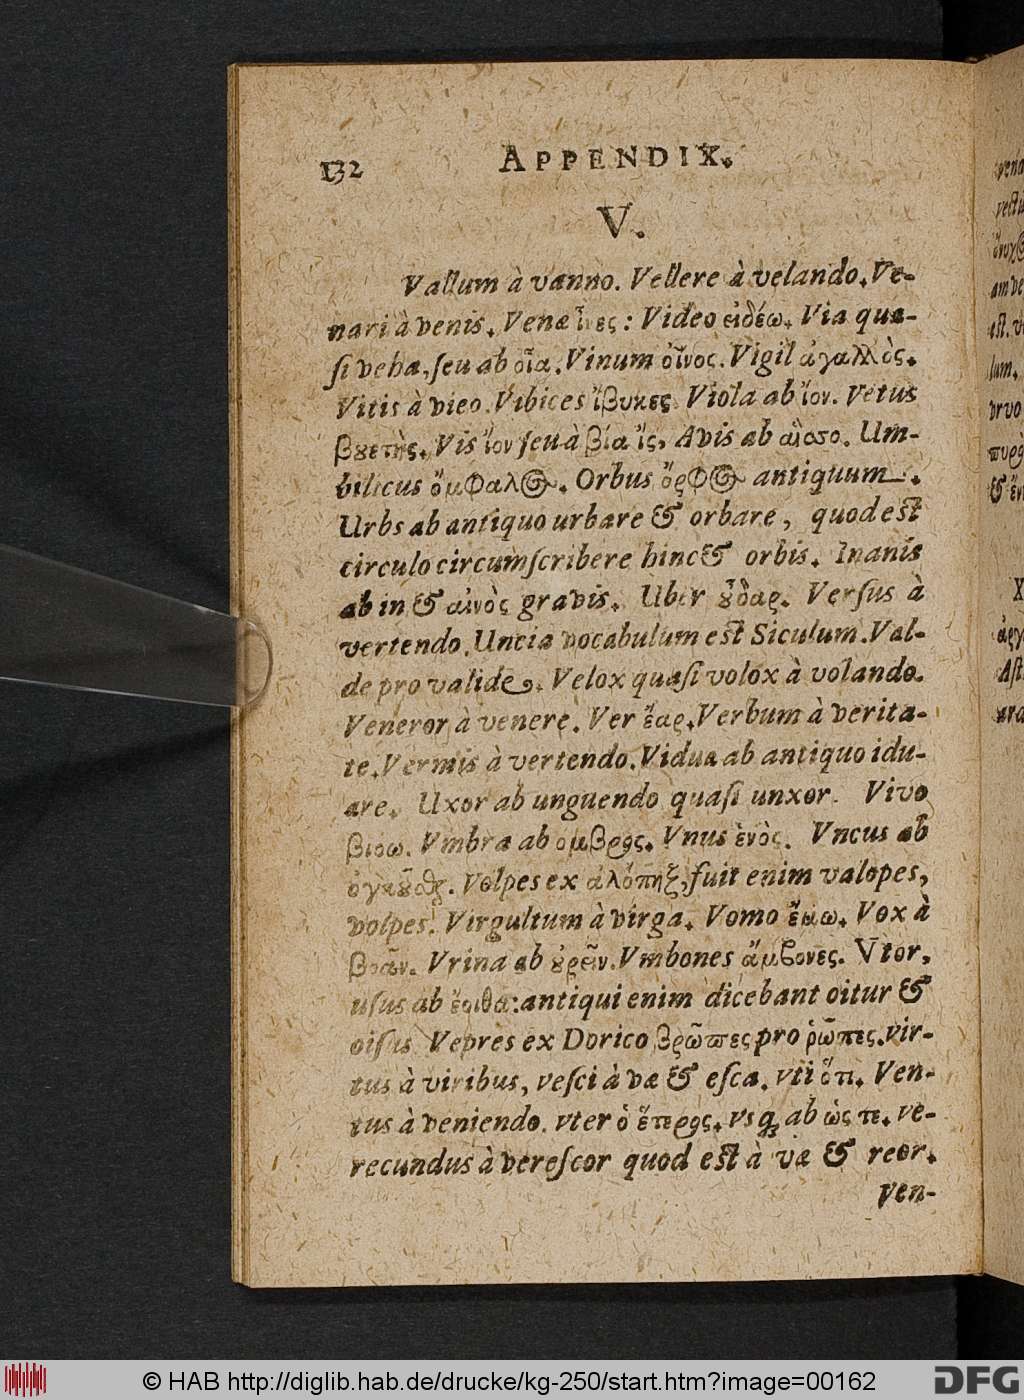 132 APPENDIX.
V.
Vallum à vanno. Vellere à velando. Ve-
nari à venis. Venæ ἶνες: Video εἰδέω. Via qua-
ſi veha, ſeu ab οἷα. Vinum οἶνος. Vigil ἀγαλλὸς.
Vitis à vieo. Vibices ἴβυκες. Viola ab ἴον. Vetus
βȣετὴς. Vis ἴον ſeu à βία ἴς, Avis ab
bilicus ὄμφαλ. Orbus ὄρφ antiquum.
Urbs ab antiquo urbare & orbare, quod eſt
circulo circumſcribere hinc & orbis. Inanis
ab in & αἰνὸς gravis. Uber ȣ̓͂δαρ. Verſus à
vertendo. Uncia vocabulum eſt Siculum. Val-
de pro valide. Velox quaſi volox à volando.
Veneror à venere. Ver ἔαρ. Verbum à verita-
te. Vermis à vertendo. Vidua ab antiquo idu-
are. Uxor ab unguendo quaſi unxor. Vivo
βιόω. Vmbra ab ομβρος. Vnus ἑνὸς. Vncus ab
Volpes ex ἀλόπηξ, fuit enim valopes,
volpes. Virgultum à virga. Vomo ἔμω. Vox à
βοᾶν. Vrina ab ȣ̓ρεῖν. Vmbones ἄμβονες. Vtor,
uſus ab antiqui enim dicebant oitur &
oiſus Vepres ex Dorico βρῶπες pro ῥῶπες. vir-
tus à viribus, veſci à væ & eſca. vti ὅτι. Ven-
tus à veniendo. vter ὁ ἕτερος. vsq; ab ὡς τε. ve-
recundus à vereſcor quod eſt à væ & reor.
ven-
© HAB http://diglib.hab.de/drucke/kg-250/start.htm?image=00162
DFG